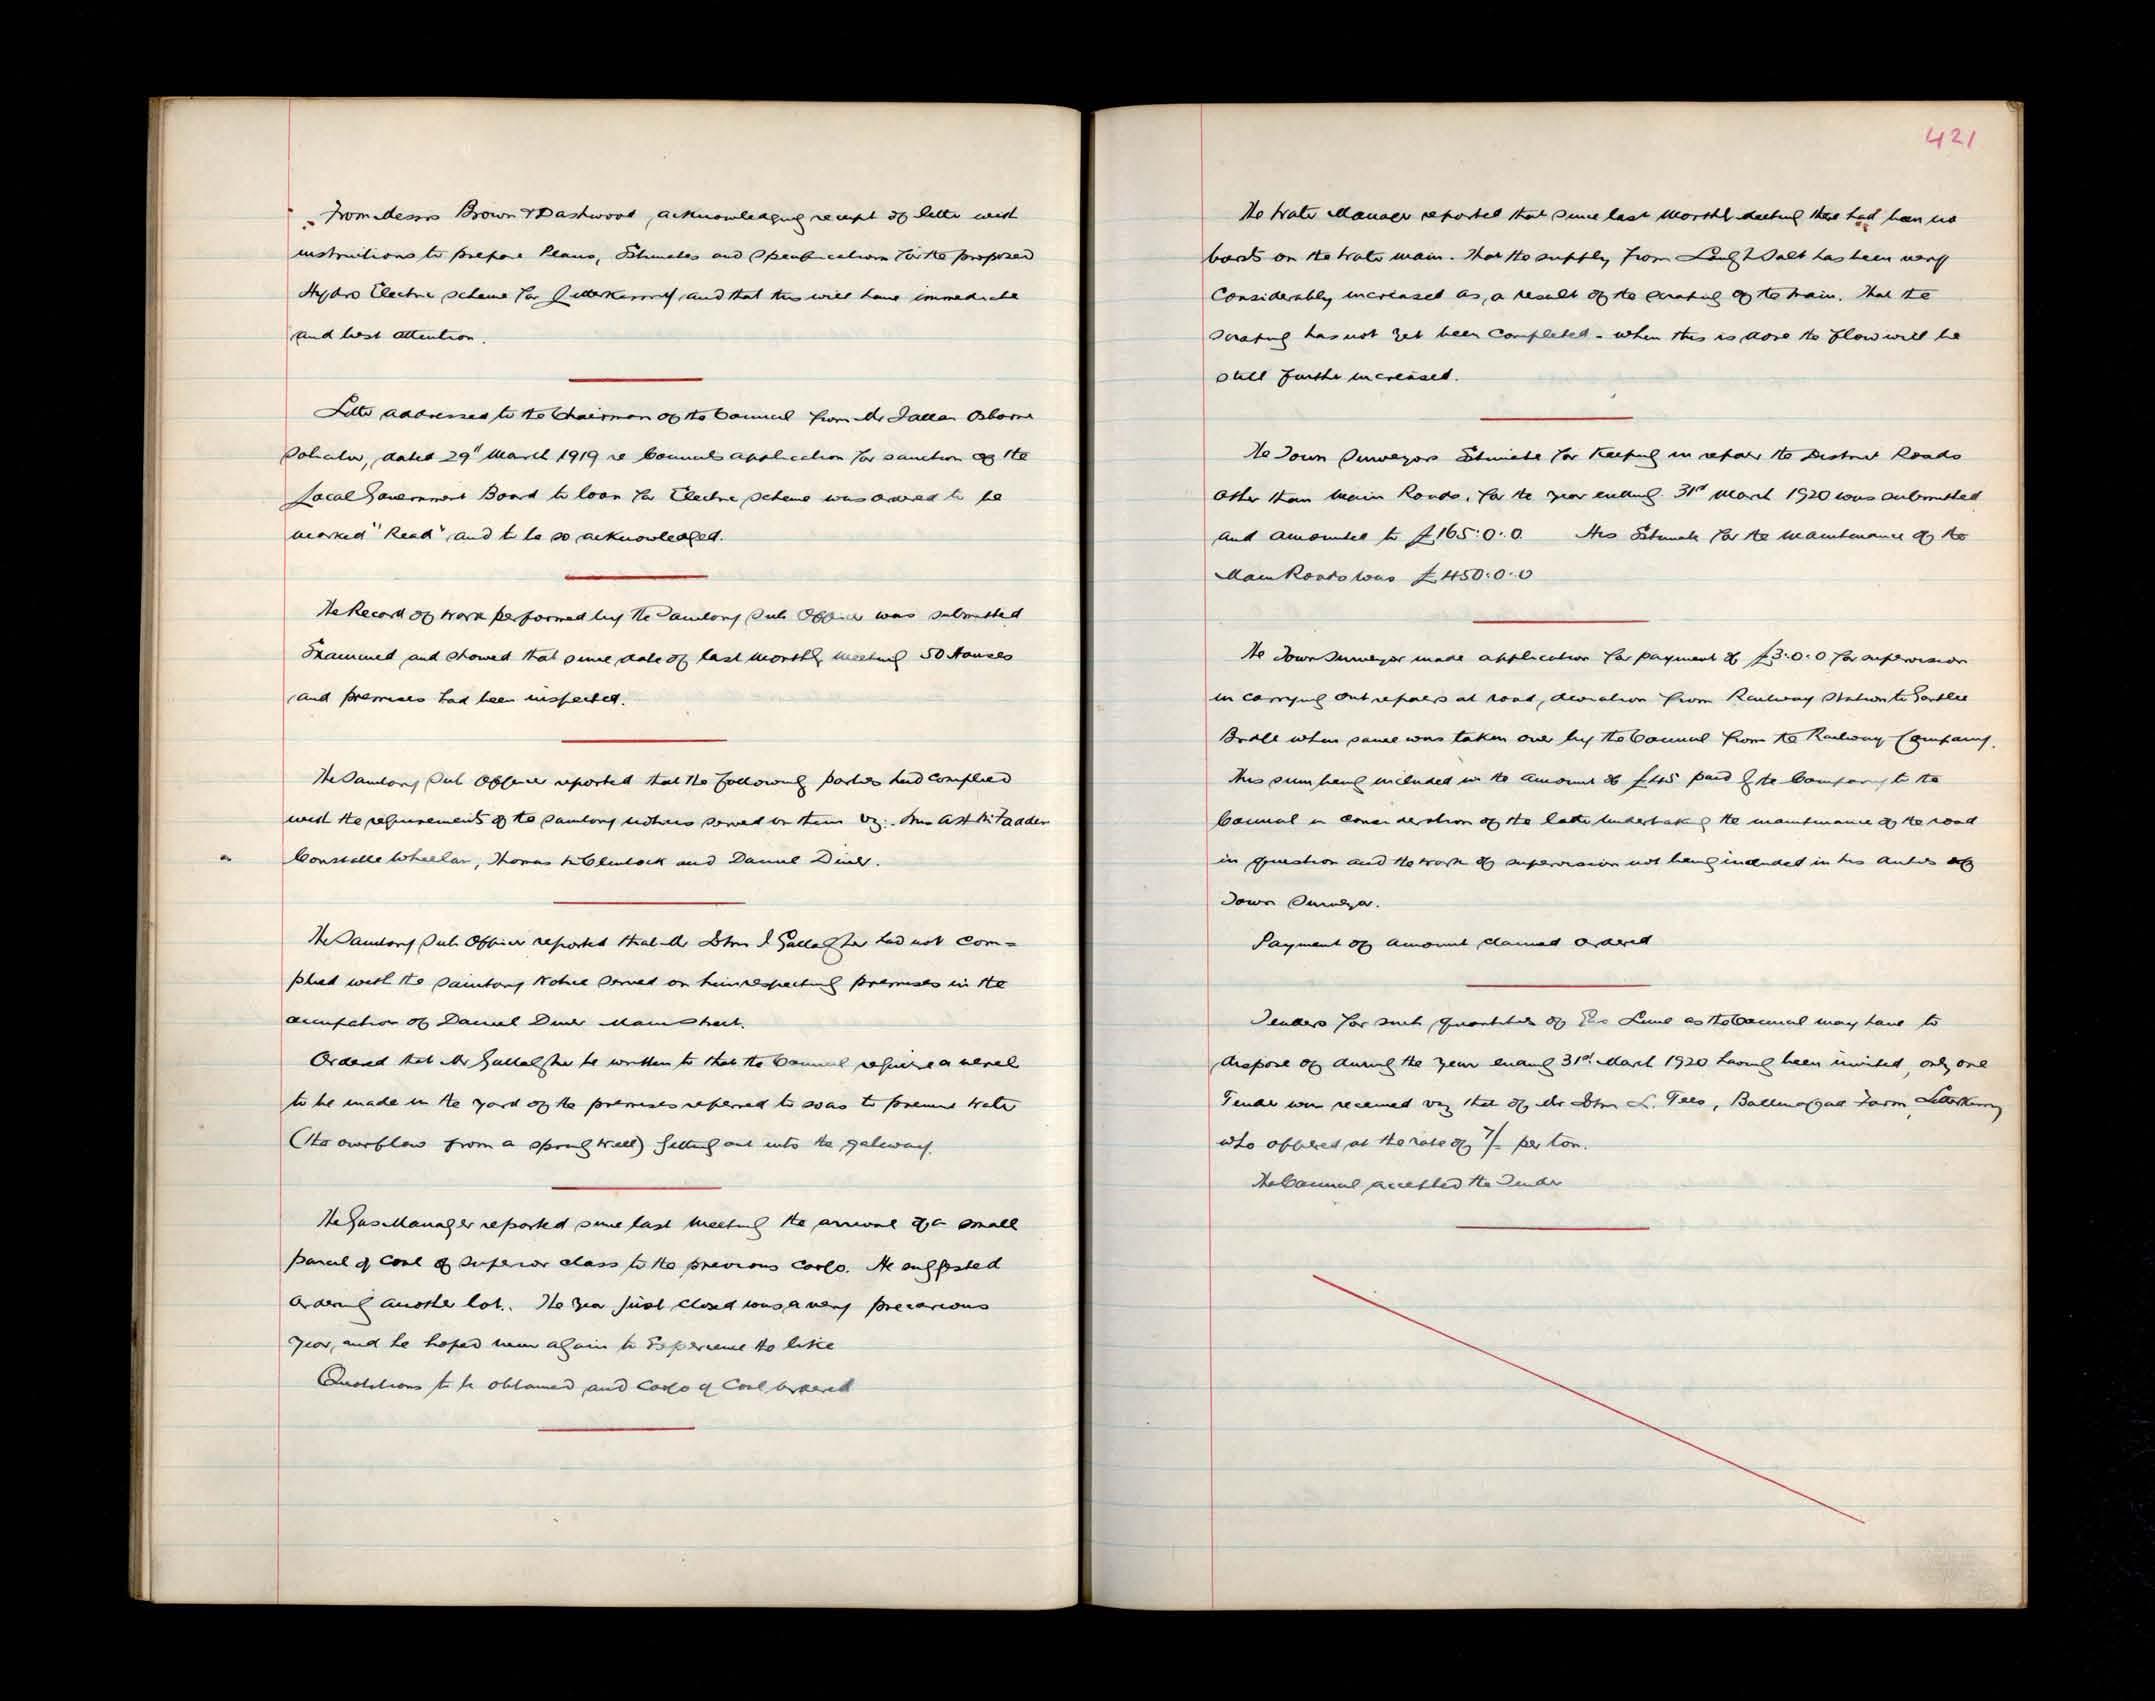 From Messrs Brown & Dashwood, acknowledging receipt of letter with
instructions to prepare Plans, Estimates and Specification for the proposed
Hydro Electric Scheme for Letterkenny and that this will have immediate
and best attention.
Letter addressed to the Chairman of the Council from Mr Osborne
Solicitor, dated 29th March 1919 re Councils application for sanction of the
Local Government Board to loan for Electric Scheme was ordered to be
marked "Read" and to be so acknowledged.
The Record of work performed by the Sanitary Sub Officer was submitted
Examined and showed that since date of last Monthly meeting 50 Houses
and premises had been inspected.
The Sanitary Sub Officer reported that the following parties had complied
with the requirements of the Sanitary notices served on them viz:. McFadden
Constable Wheelan, Thomas McClintock and Daniel Diver.
The Sanitary Sub Officer reported that Mr John J Gallagher had not com=
plied with the Sanitary Notice served on him respecting premises in the
occupation of Daniel Diver Main Street.
Ordered that Mr Gallagher be written to that the Council require a
to be made in the yard of the premises referred to so as to prevent water
(the overflow from a spring well) getting out into the gateway.
The Gas Manager reported since last Meeting the arrival of a small
parcel of Coal of superior class to the previous Cargo. He suggested
ordering another lot. The year just closed was a very precarious
year, and he hoped never again to Experience the like
Quotations to be obtained and Cargo of Coal ordered
421
The Water Manager reported that since last Monthly Meeting there had been no
bursts on the Water main. That the supply from Lough Salt has been very
Considerably increased as a result of the scraping of the main. That the
scraping has not yet been Completed - when this is done the flow will be
still further increased.
The Town Surveyors Estimate for Keeping in repair the District Roads
other than Main Roads, for the year ending 31st March 1920 was submitted
and amounted to £165:0:0 His Estimate for the maintenance of the
Main Roads was £450:0:0
The Town Surveyor made application for payment of £3:0:0 for supervision
in carrying out repairs at road, deviation from Railway Station to Gortlee
Bridge when same was taken over by the Council from the Railway Company.
This sum being included in the amount of £45 paid by the Company to the
Council in consideration of the latter undertaking the maintenance of the road
in question and the work of supervision not being included in his duties as
Town Surveyor.
Payment of amount claimed ordered
Tenders for such quantities of Gas Lime as the Council may have to
dispose of during the year ending 31st March 1920 having been invited, only one
Tender was received viz that of Mr John L. Tees, Ballymagall Farm, Letterkenny
who offered at the rate of 7/- per ton.
The Council accepted the Tender